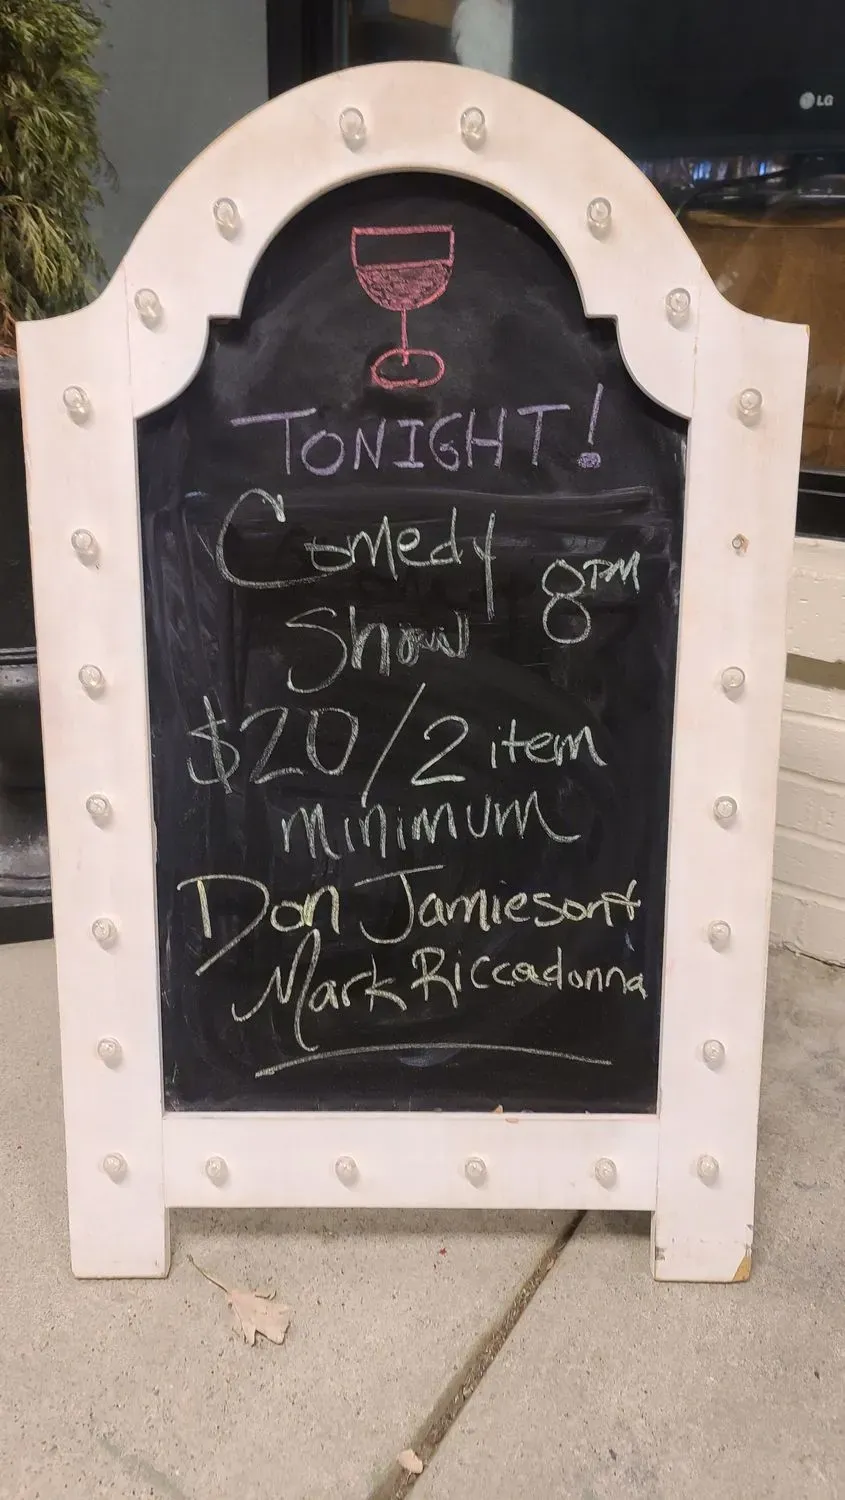 LG
TONIGHT!
Comedy
Show 8PM
$20/2 item
minimum
Don Jamieson +
Mark Riccadonna